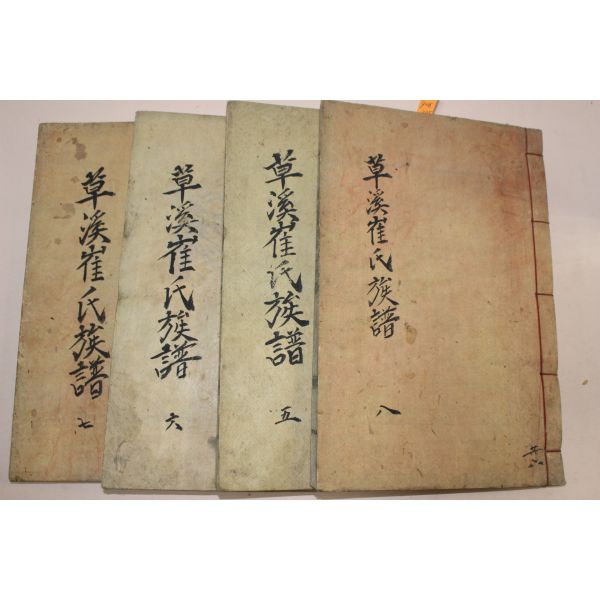 草溪崔氏族譜
七
草溪崔氏族譜
六
草溪崔氏族譜
五
草溪崔氏族譜
八